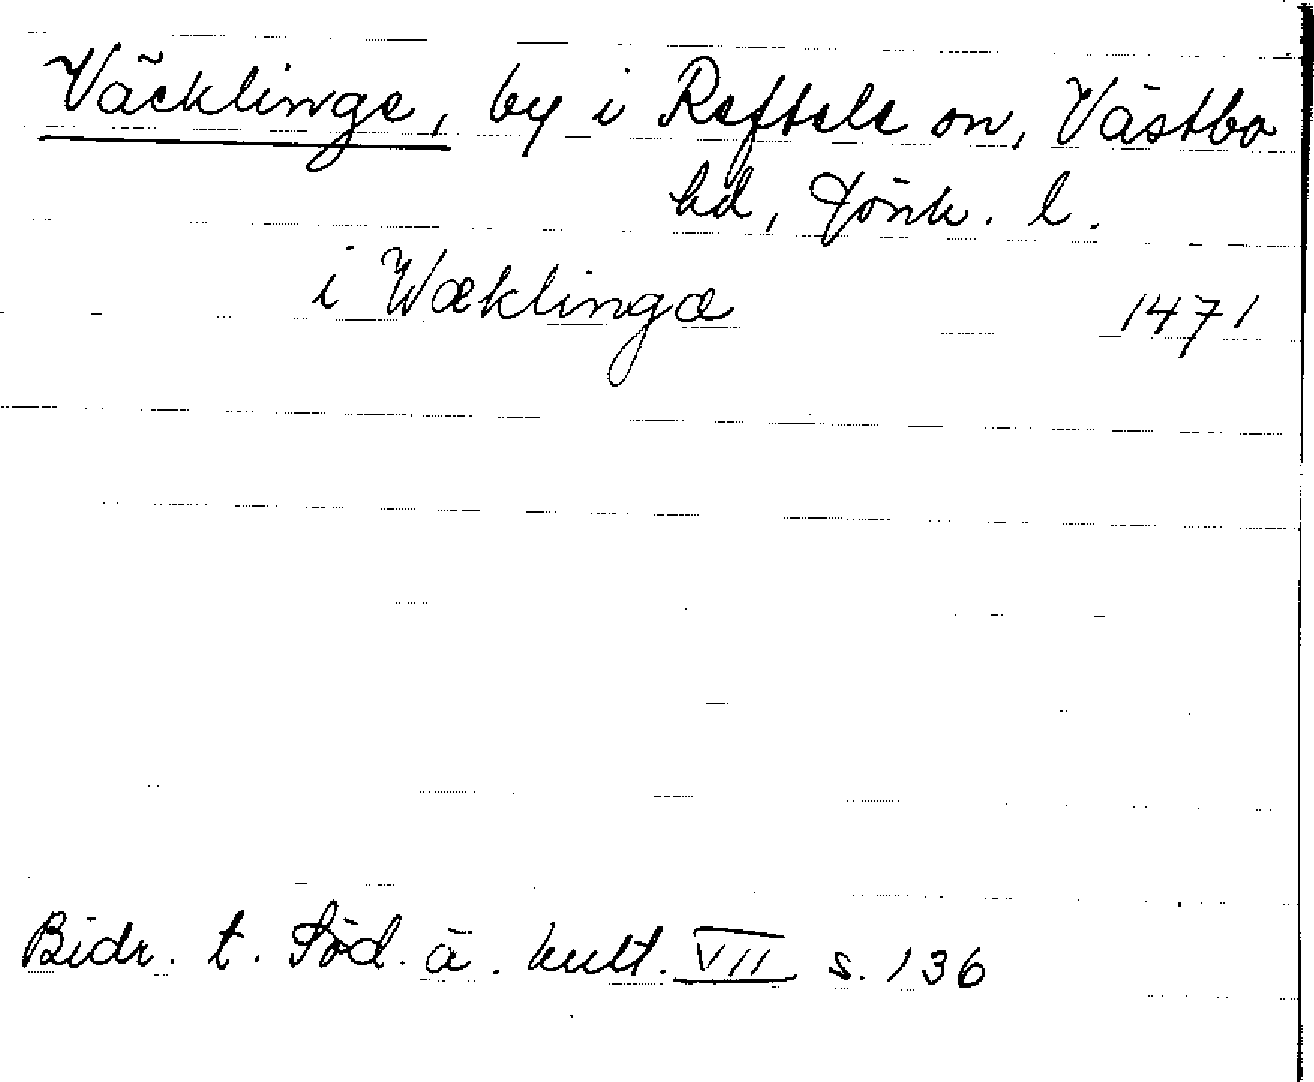 Väcklinge, by i Reftele sn, Västbo
hd, Jönk. l.
i Wæklingæ 1471
Bidr. t. Söd. ä. kult. VII s. 136